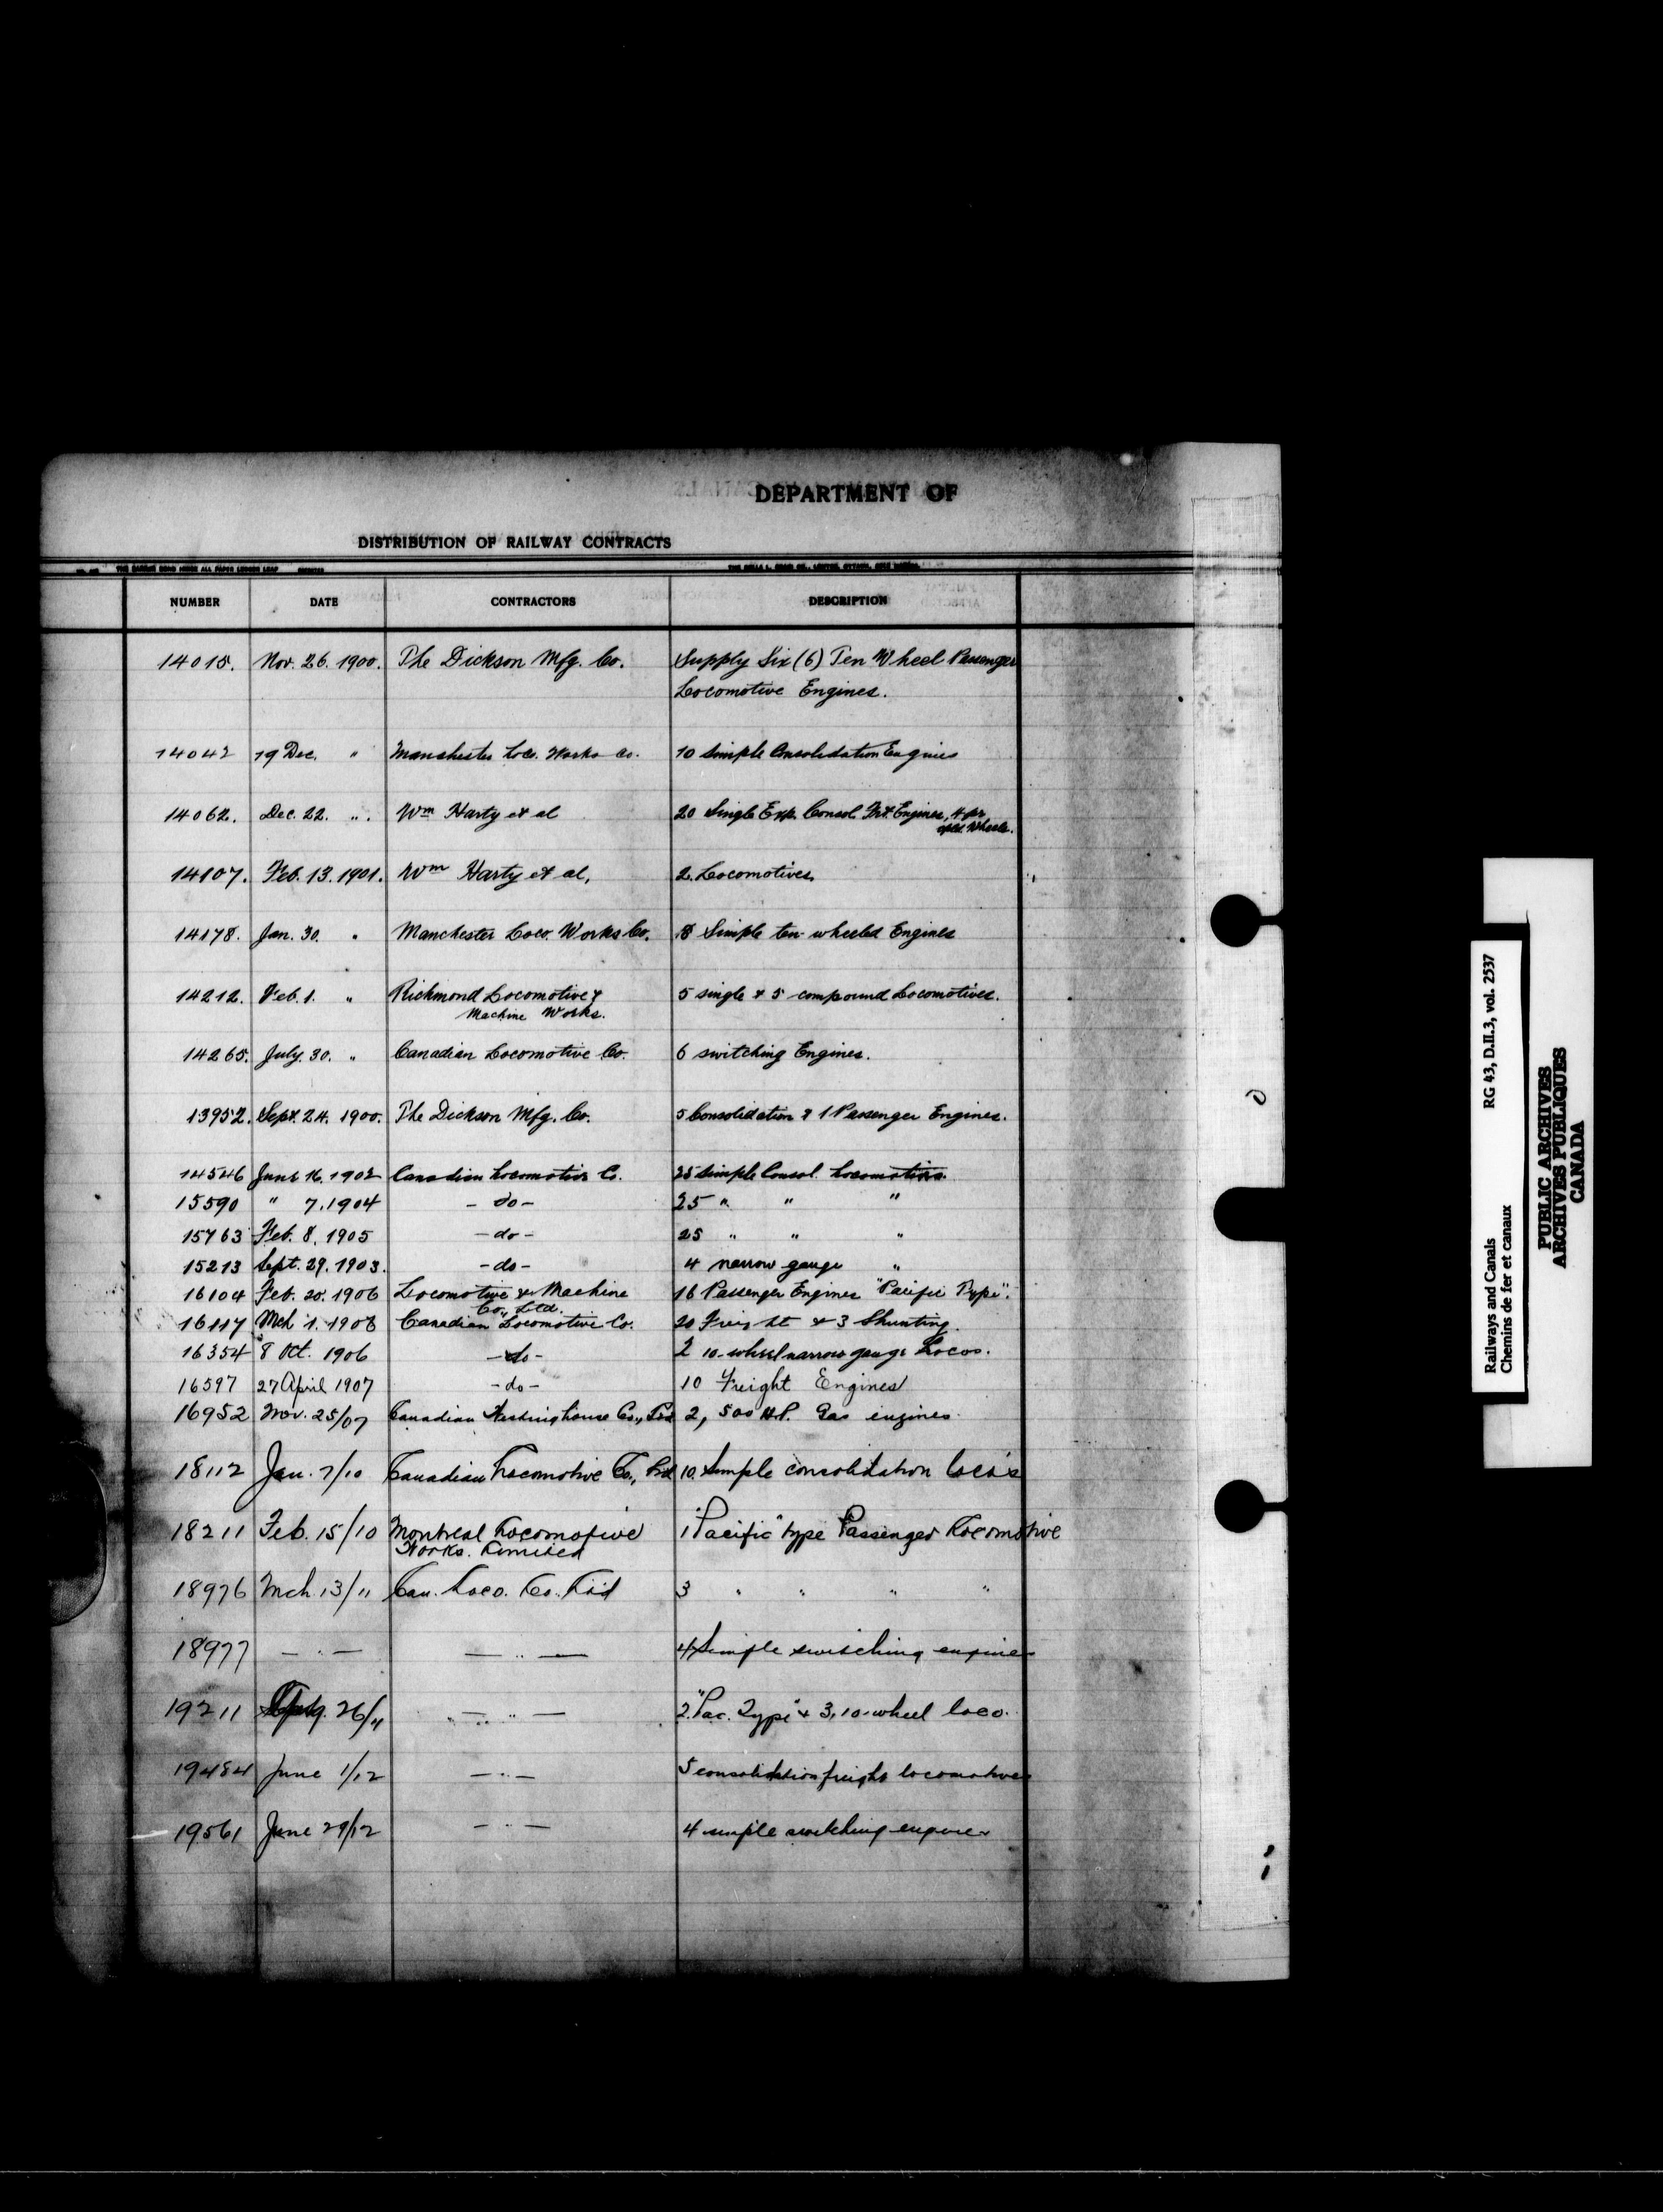 DEPARTMENT OF
DISTRIBUTION OF RAILWAY CONTRACTS
NUMBER DATE CONTRACTORS DESCRIPTION
14015. Nov. 26. 1900. The Dickson Mfg. Co. Supply Six (6) Ten Wheel Passenger
Locomotive Engines.
14042 19 Dec. " Manchester Loco. Works Co. 10 Simple Consolidation Engines
14062. Dec. 22. ". Wm Harty et al 20 Single Exp. Consol. Frt. Engines, 4 prs
Wheels.
14107. Feb. 13. 1901. Wm Harty et al, 2. Locomotives
14178. Jan. 30. " Manchester Loco. Works Co. 8 Simple ten-wheeled Engines
14212. Feb. 1. " Richmond Locomotive & 5 single & 5 compound Locomotives.
Machine Works.
14265. July. 30. " Canadian Locomotive Co. 6 switching Engines.
13952. Sept. 24. 1900. The Dickson Mfg. Co. 5 Consolidation & 1 Passenger Engines.
14546 June 16. 1902 Canadian Locomotive Co. 25 simple Consol. Locomotives.
15590 " 7. 1904 - do - 25 " " "
15763 Feb. 8. 1905 - do - 25 " " "
15213 Sept. 29. 1903. - do - 4 narrow gauge "
16104 Feb. 20. 1906 Locomotive & Machine 16 Passenger Engines "Pacific Type".
Co., Ltd.
16117 Mch 1. 1906 Canadian Locomotive Co. 20 Freight & 3 Shunting.
16354 8 Oct. 1906 - do - 2 10-wheel narrow gauge Locos.
16597 27 April 1907 - do - 10 Freight Engines
16952 Nov. 25/07 Canadian Westinghouse Co., Ltd 2, 500 H.P. Gas engines.
18112 Jan. 7/10 Canadian Locomotive Co., Ltd 10. Simple consolidation loco's
18211 Feb. 15/10 Montreal Locomotive 1 "Pacific" type Passenger Locomotive
Works. Limited
18976 Mch 13/11 Can. Loco. Co. Ltd 3 " " " "
18977 — " — — " — 4 Simple switching engines
19211 26/11 — " — 2. "Pac. Type" & 3, 10-wheel loco.
19484 June 1/12 — " — 5 consolidation freight locomotives
19561 June 29/12 — " — 4 simple switching engines
Railways and Canals RG 43, D.II.3, vol. 2537
Chemins de fer et canaux
PUBLIC ARCHIVES
ARCHIVES PUBLIQUES
CANADA